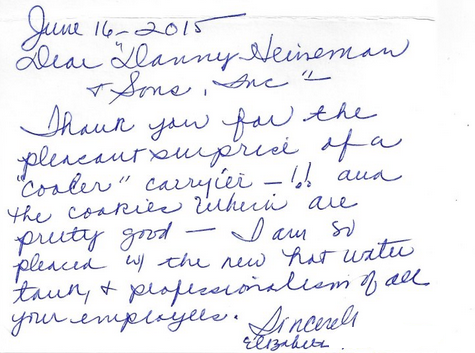 June 16-2015
Dear "Danny Heineman
& Sons, Inc"-
Thank you for the
pleasant surprise of a
"cooler" carryier -!! and
the cookies within are
pretty good - I am so
pleased w/ the new hot water
tank, & professionalism of all
your employees.
Sincerely
Elizabeth